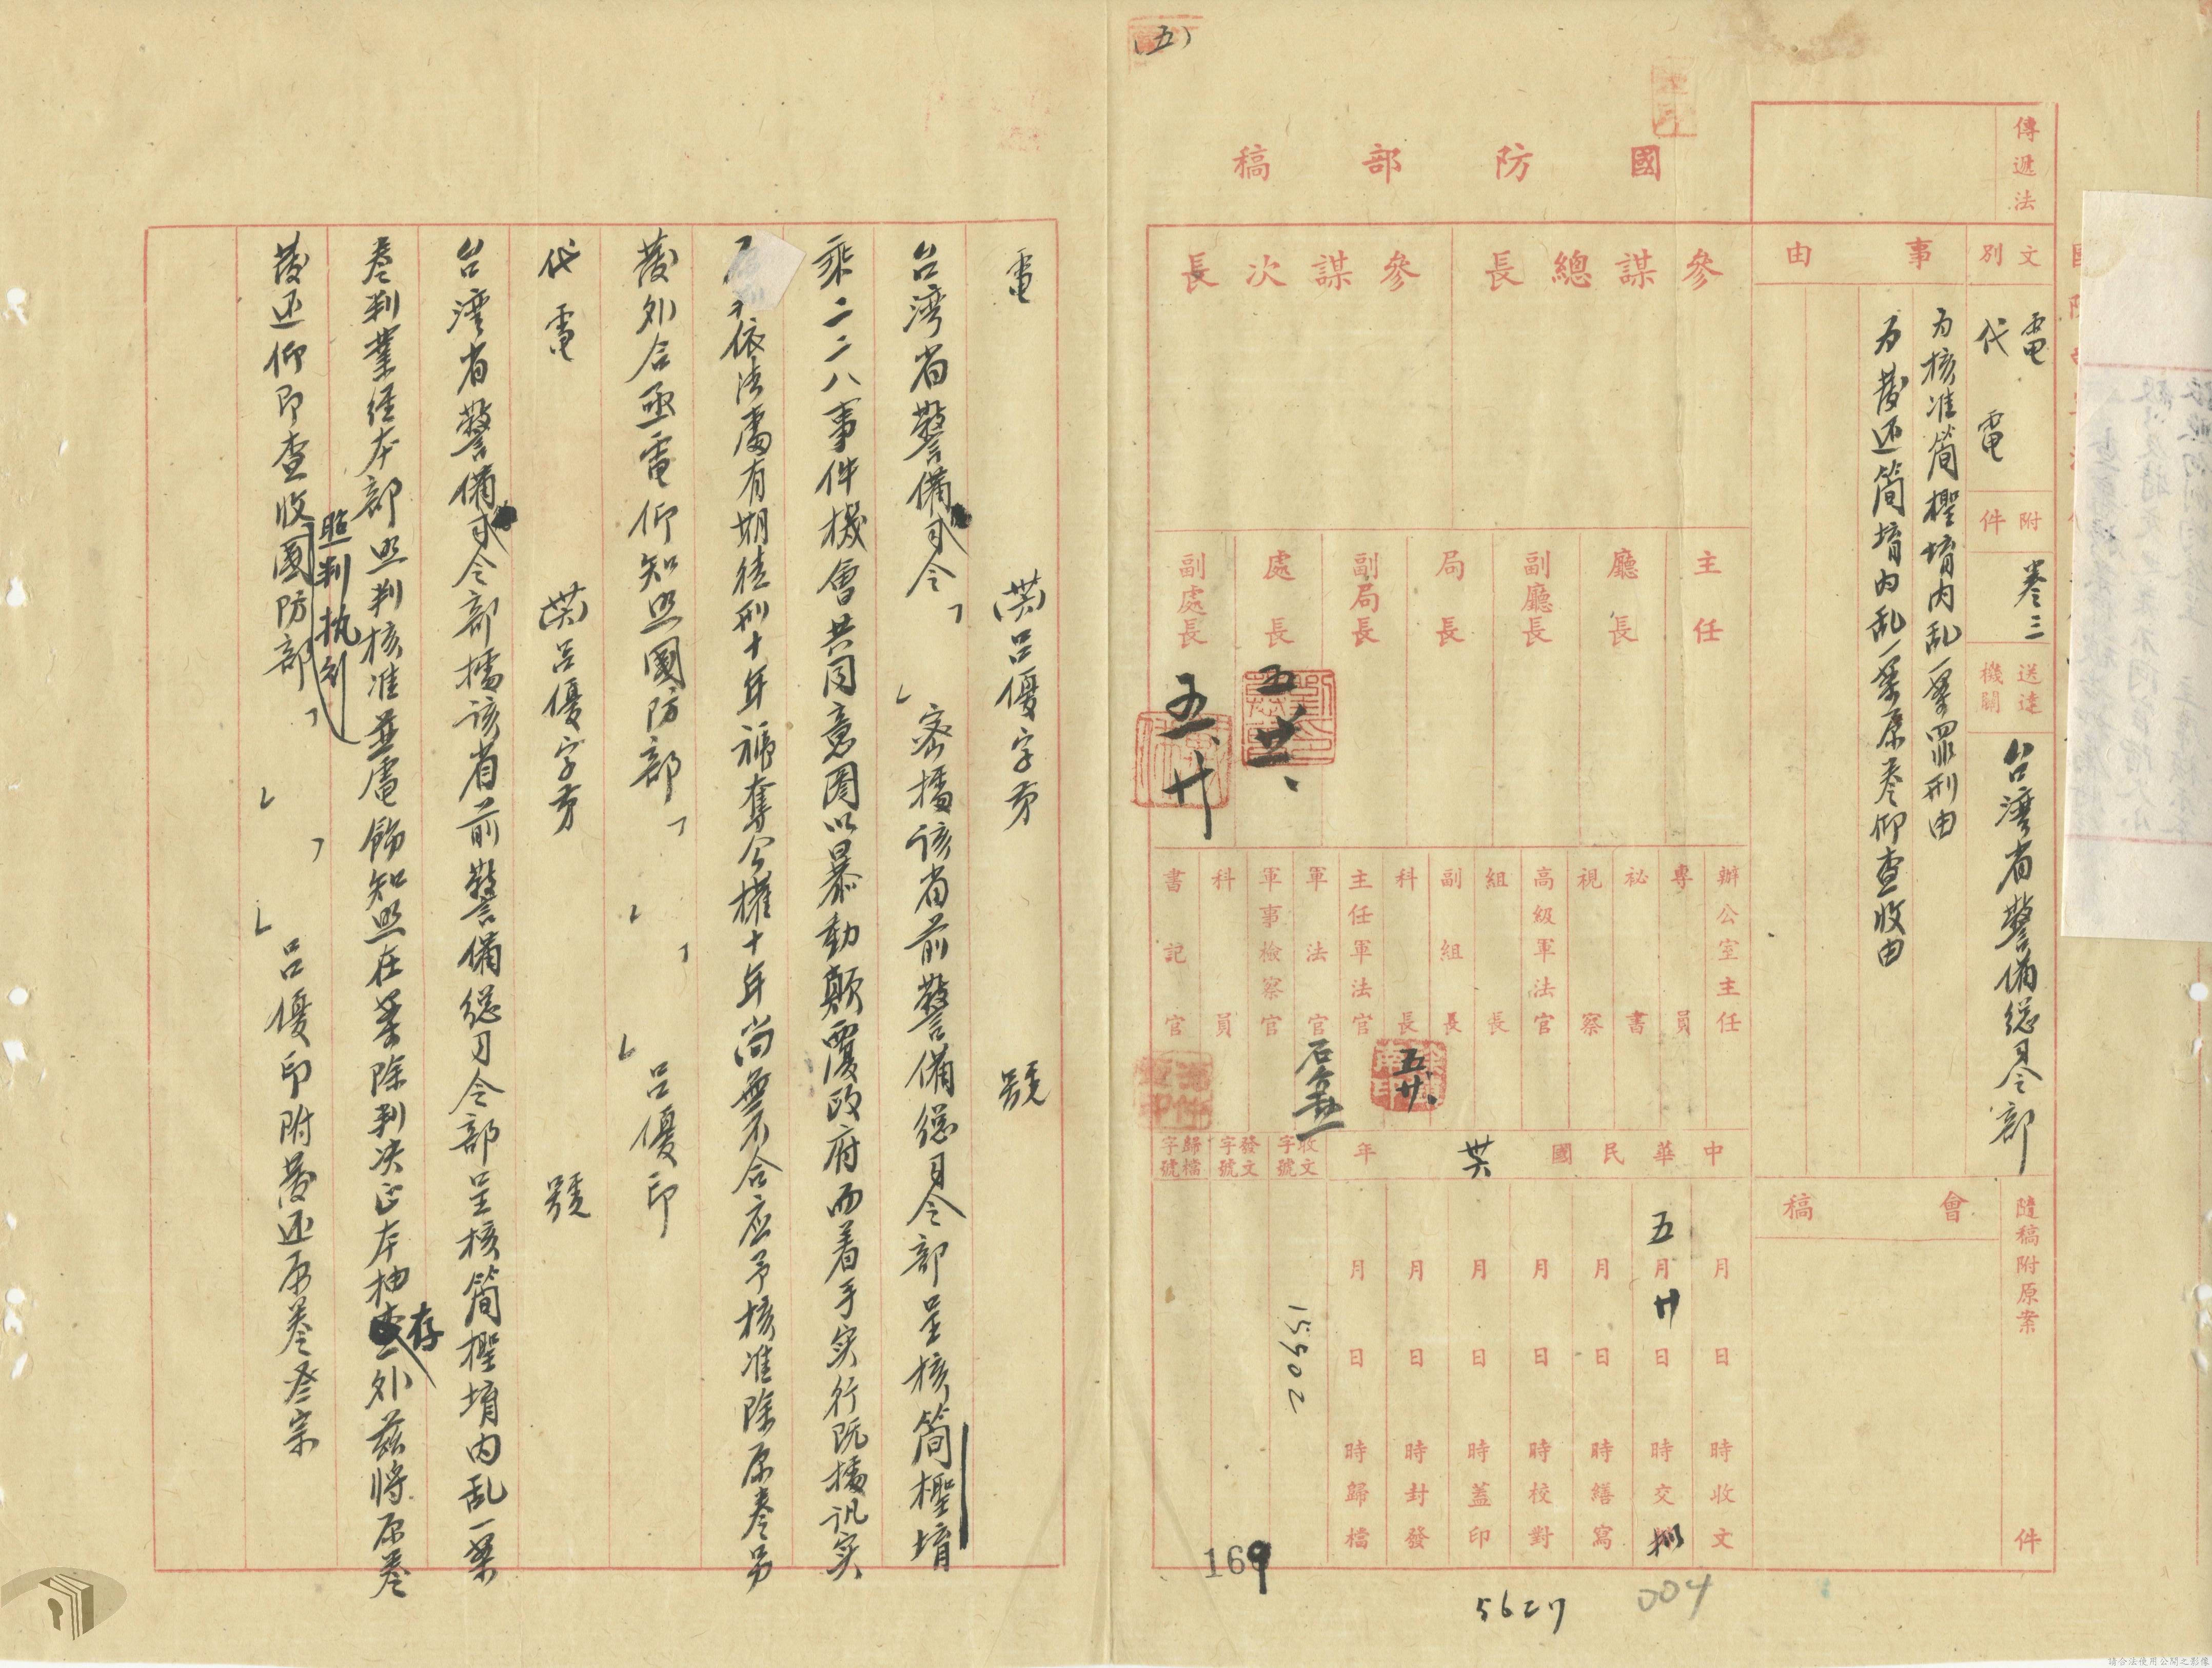 (五)
國防部稿
傳遞法
文別
電
代電
附件
卷三
送達機關
台灣省警備總司令部
事由
为核准簡檉堉內乱一案罪刑由
为發还簡堉內乱一案原卷仰查收由
隨稿附原案
件
會稿
參謀總長
參謀次長
主任
廳長
副廳長
局長
副局長
處長
五廿、
副處長
五、廿
辦公室主任
專員
祕書
視察
高級軍法官
組長
副組長
科長
五廿、
主任軍法官
軍法官
軍事檢察官
科員
書記官
中華民國
年
月日時收文
五月廿日時交
月日時繕寫
月日時校對
月日時蓋印
月日時封發
月日時歸檔
收文字號
發文字號
歸檔字號
15902
169
5627
004
電
號
台灣省警備司令
密據该省前警備總司令部呈核簡檉堉
乘二二八事件機會共同意圖以暴動顛覆政府而着手实行既據讯实
依法處有期徒刑十年褫奪公權十年尚無不合应予核准除原卷另
發外合亟電仰知照國防部
呂優印
代電
呂優字第
號
台灣省警備司令部據该省前警備總司令部呈核簡檉堉內乱一案
卷判業经本部照判核准並電飭知照在案除判决正本抽存外兹將原卷
發还仰即查收照判执行國防部
呂優印附發还原卷叁宗